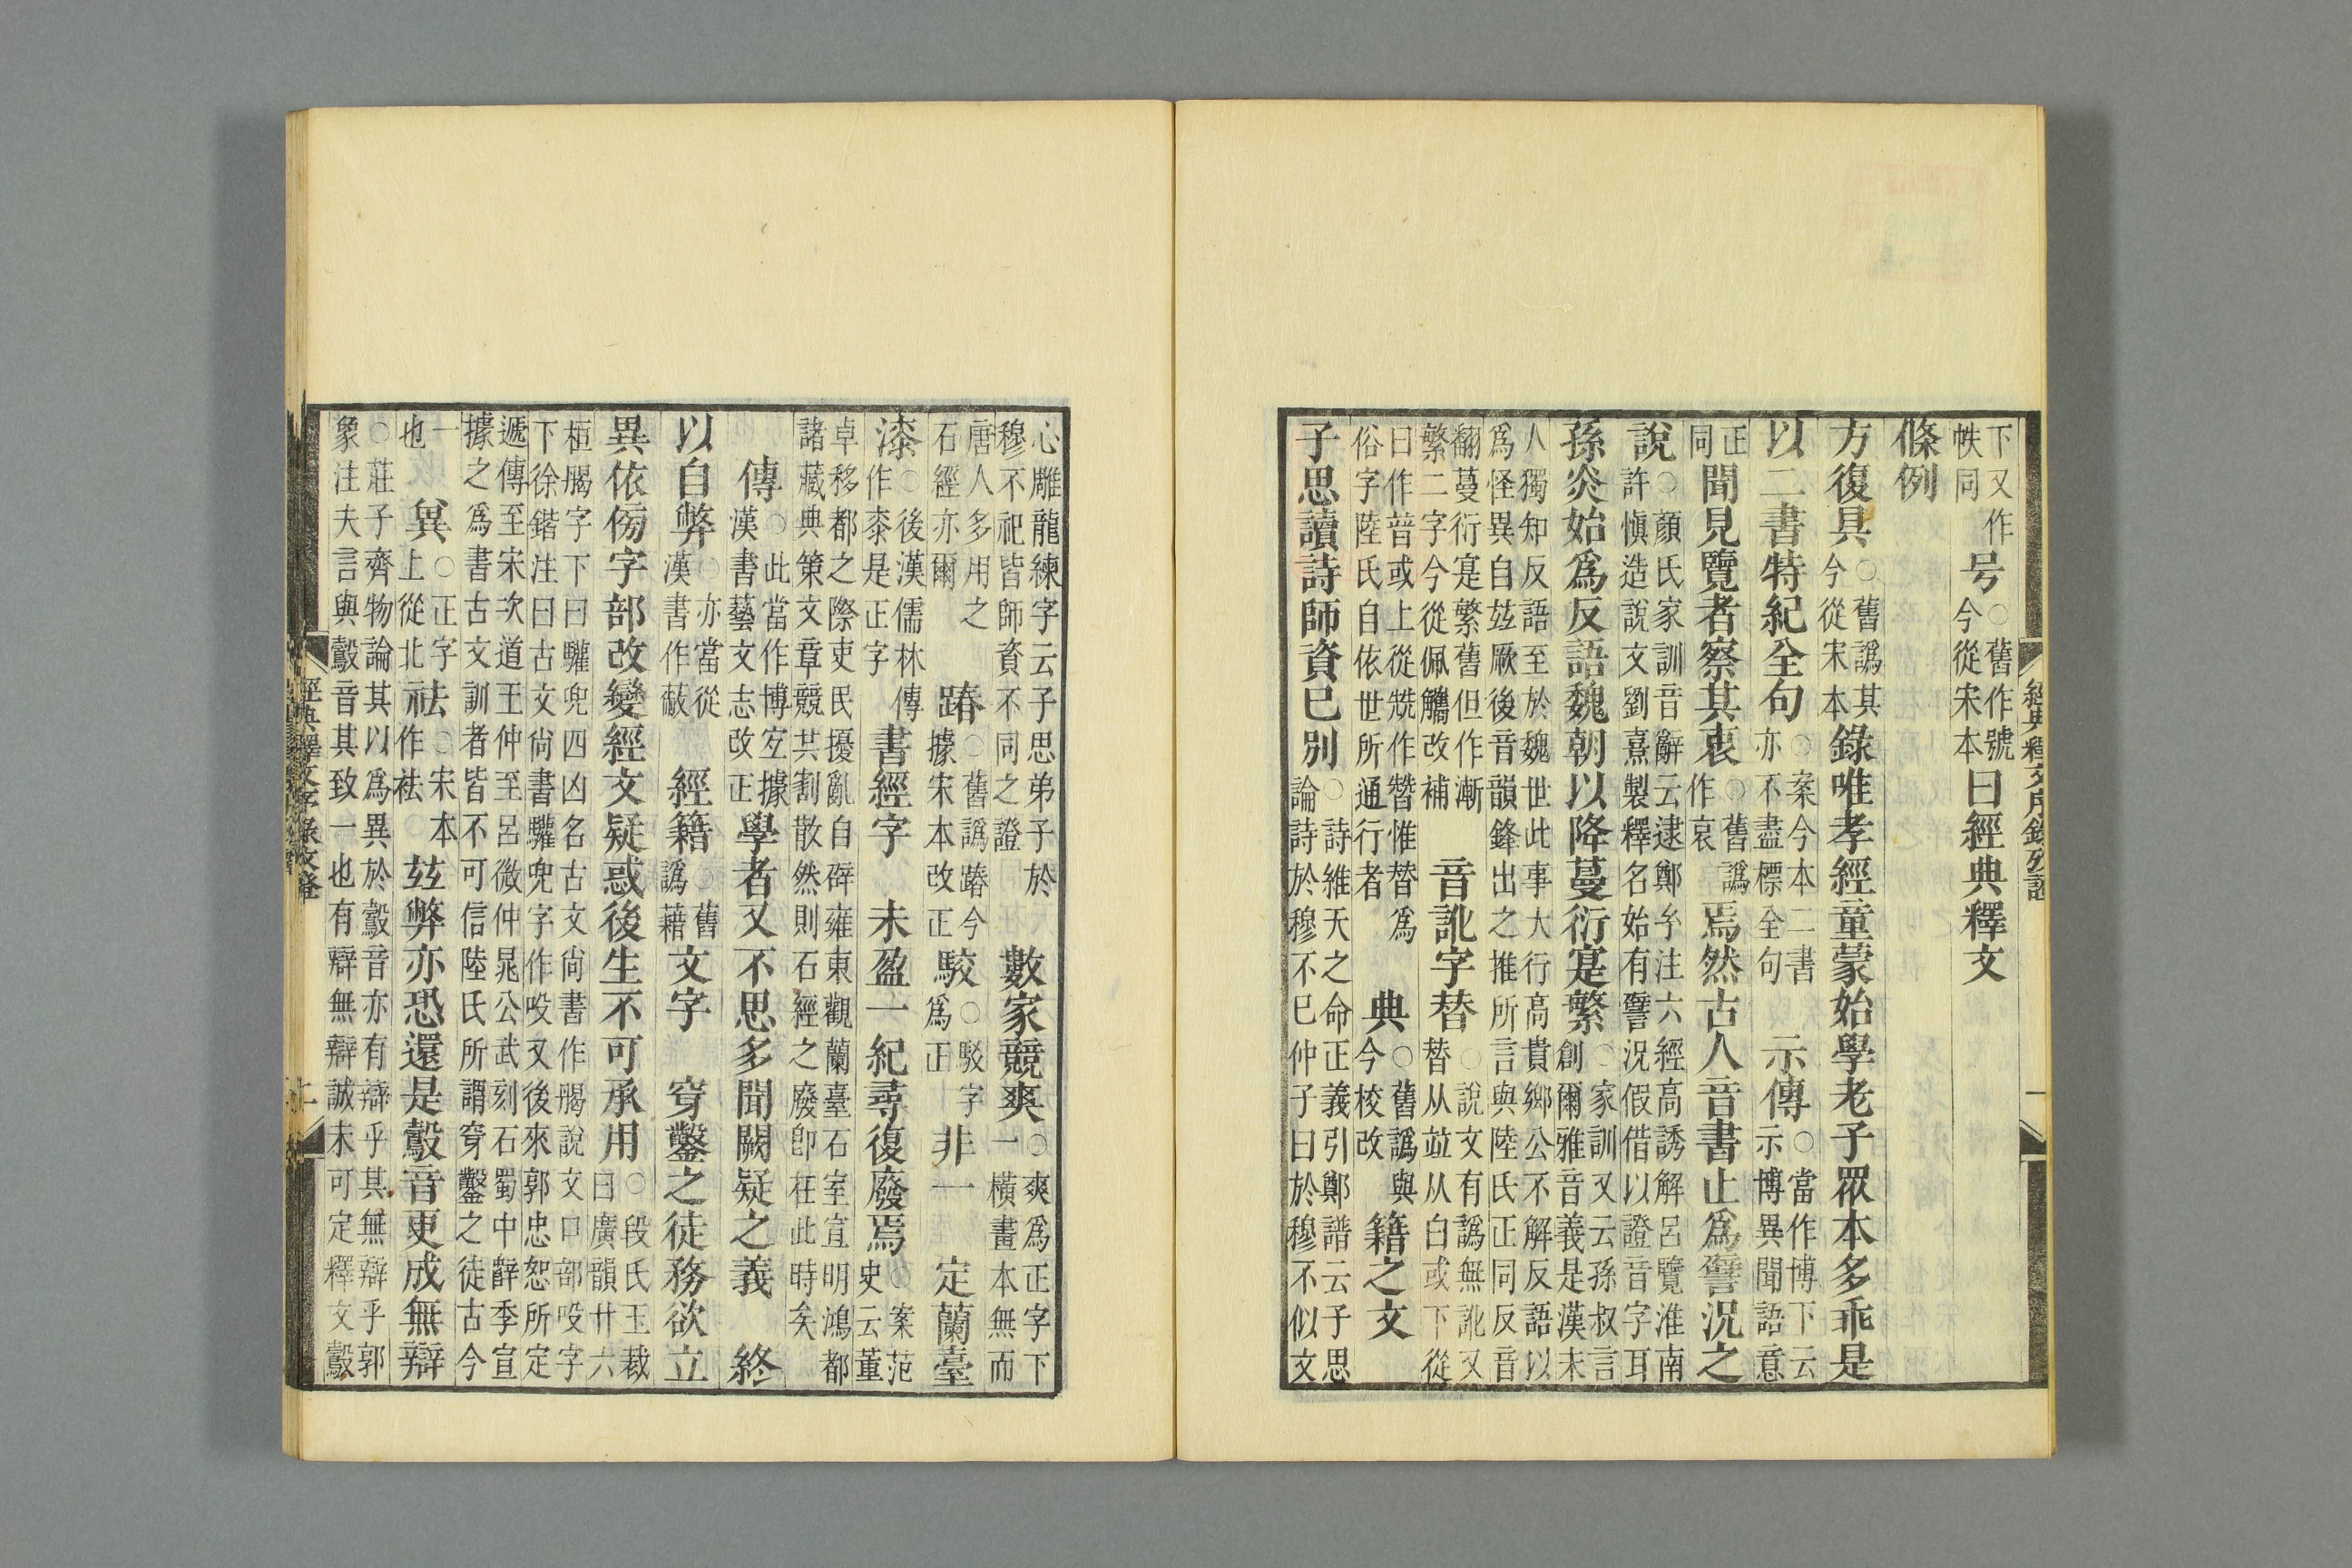 經典釋文序錄攷證
下又作帙同 号○舊作號今從宋本曰經典釋文
條例
方復具○舊譌其今從宋本錄唯孝經童蒙始學老子眾本多乖是
以二書特紀全句○案今本二書亦不盡標全句 示傳○當作博下云示博異聞語意
正同聞見覽者察其衷○舊譌作哀焉然古人音書止爲譬況之
說○顏氏家訓音辭云逮鄭㝊注六經高誘解呂覽淮南許愼造說文劉熹製釋名始有譬況假借以證音字耳
孫炎始爲反語魏朝以降蔓衍寔繁○家訓又云孫叔言創爾雅音義是漢末
人獨知反語至於魏世此事大行高貴鄉公不解反語以爲怪異自茲厥後音韻鋒出之推所言與陸氏正同反音
翻蔓衍寔繁舊但作漸繁二字今從佩觿改補 音訛字替○說文有譌無訛又替从竝从白或下從
曰作暜或上從兟作朁惟替爲俗字陸氏自依世所通行者 典○舊譌與今校改 籍之文
子思讀詩師資已別○詩維天之命正義引鄭譜云子思論詩於穆不已仲子曰於穆不似文
心雕龍練字云子思弟子於穆不祀皆師資不同之證 數家競爽○爽爲正字下一橫畫本無而
唐人多用之石經亦爾 踳○舊譌蹖今據宋本改正駮○駁字爲正非一 定蘭臺
漆○後漢儒林傳作桼是正字書經字 未盈一紀尋復廢焉○案范史云董
卓移都之際吏民擾亂自辟雍東觀蘭臺石室宣明鴻都諸藏典策文章競共剖散然則石經之廢卽在此時矣
傳○此當作博宏據漢書藝文志改正學者又不思多聞闕疑之義 終
以自弊○亦當從漢書作蔽 經籍○舊譌藉文字 穿鑿之徒務欲立
異依傍字部改變經文疑惑後生不可承用○段氏玉裁曰廣韻廿六
桓鴅字下曰驩兜四凶名古文尙書作鴅說文口部吺字下徐鍇注曰古文尙書驩兜字作吺又後來郭忠恕所定
遞傳至宋次道王仲至呂微仲晁公武刻石蜀中薛季宣據之爲書古文訓者皆不可信陸氏所謂穿鑿之徒古今
一也 兾○正字上從北祛○宋本作袪茲弊亦恐還是鷇音更成無辯
○莊子齊物論其以爲異於鷇音亦有辯乎其無辯乎郭象注夫言與鷇音其致一也有辯無辯誠未可定釋文鷇